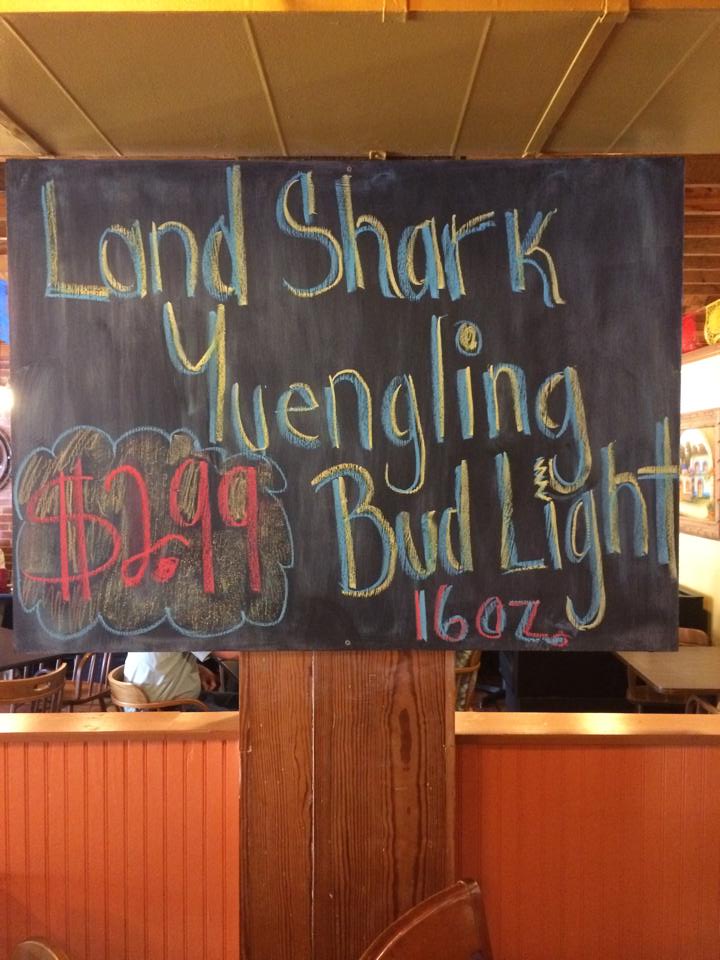 Land Shark
Yuengling
Bud Light
$2.99
16oz.